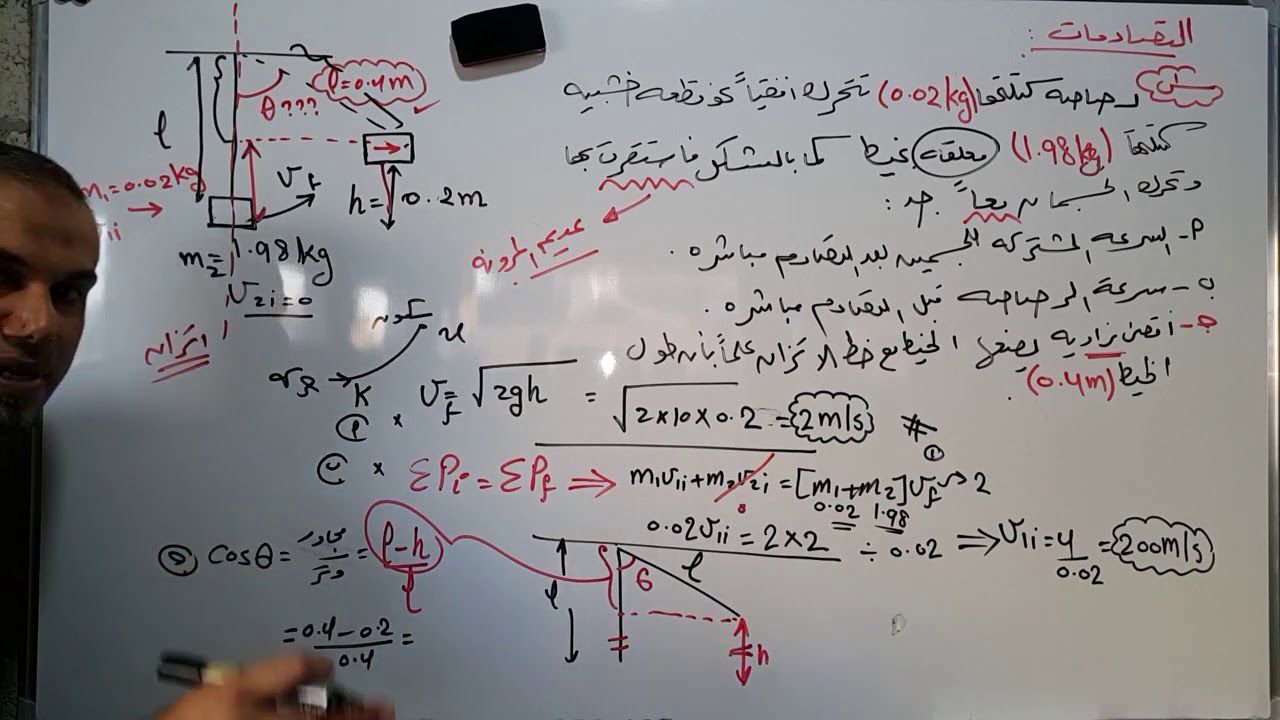 التصادمات :
س رصاصة كتلتها (0.02kg) تتحرك افقياً نحو قطعة خشبية
كتلتها (1.98kg) معلقة بخيط كما بالشكل فاستقرت بها
وتحرك الجسمان معاً جد :
عديم المرونة
P- السرعة المشتركة للجسمين بعد التصادم مباشرة .
ب - سرعة الرصاصة قبل التصادم مباشرة .
ج - أقصى زاوية يصنعها الخيط مع خط الاتزان علماً بأن طول
الخيط (0.4m) .
l
θ???
l=0.4m
m₁=0.02kg
v₁i
V_f
h=0.2m
m₂=1.98kg
V₂i=0
اتزان
سكون
K
u
P × V_f=√2gh = √2×10×0.2 = 2m/s # ①
ب × ΣPi = ΣPf ⇒ m₁v₁i+m₂v₂i=[m₁+m₂]V_f → 2
0
0.02 1.98
0.02V₁i=2×2 ÷ 0.02 ⇒ V₁i=4/0.02 =200m/s
ج Cosθ = مجاور/وتر = l-h/l
= 0.4-0.2/0.4 =
l
θ
l
h